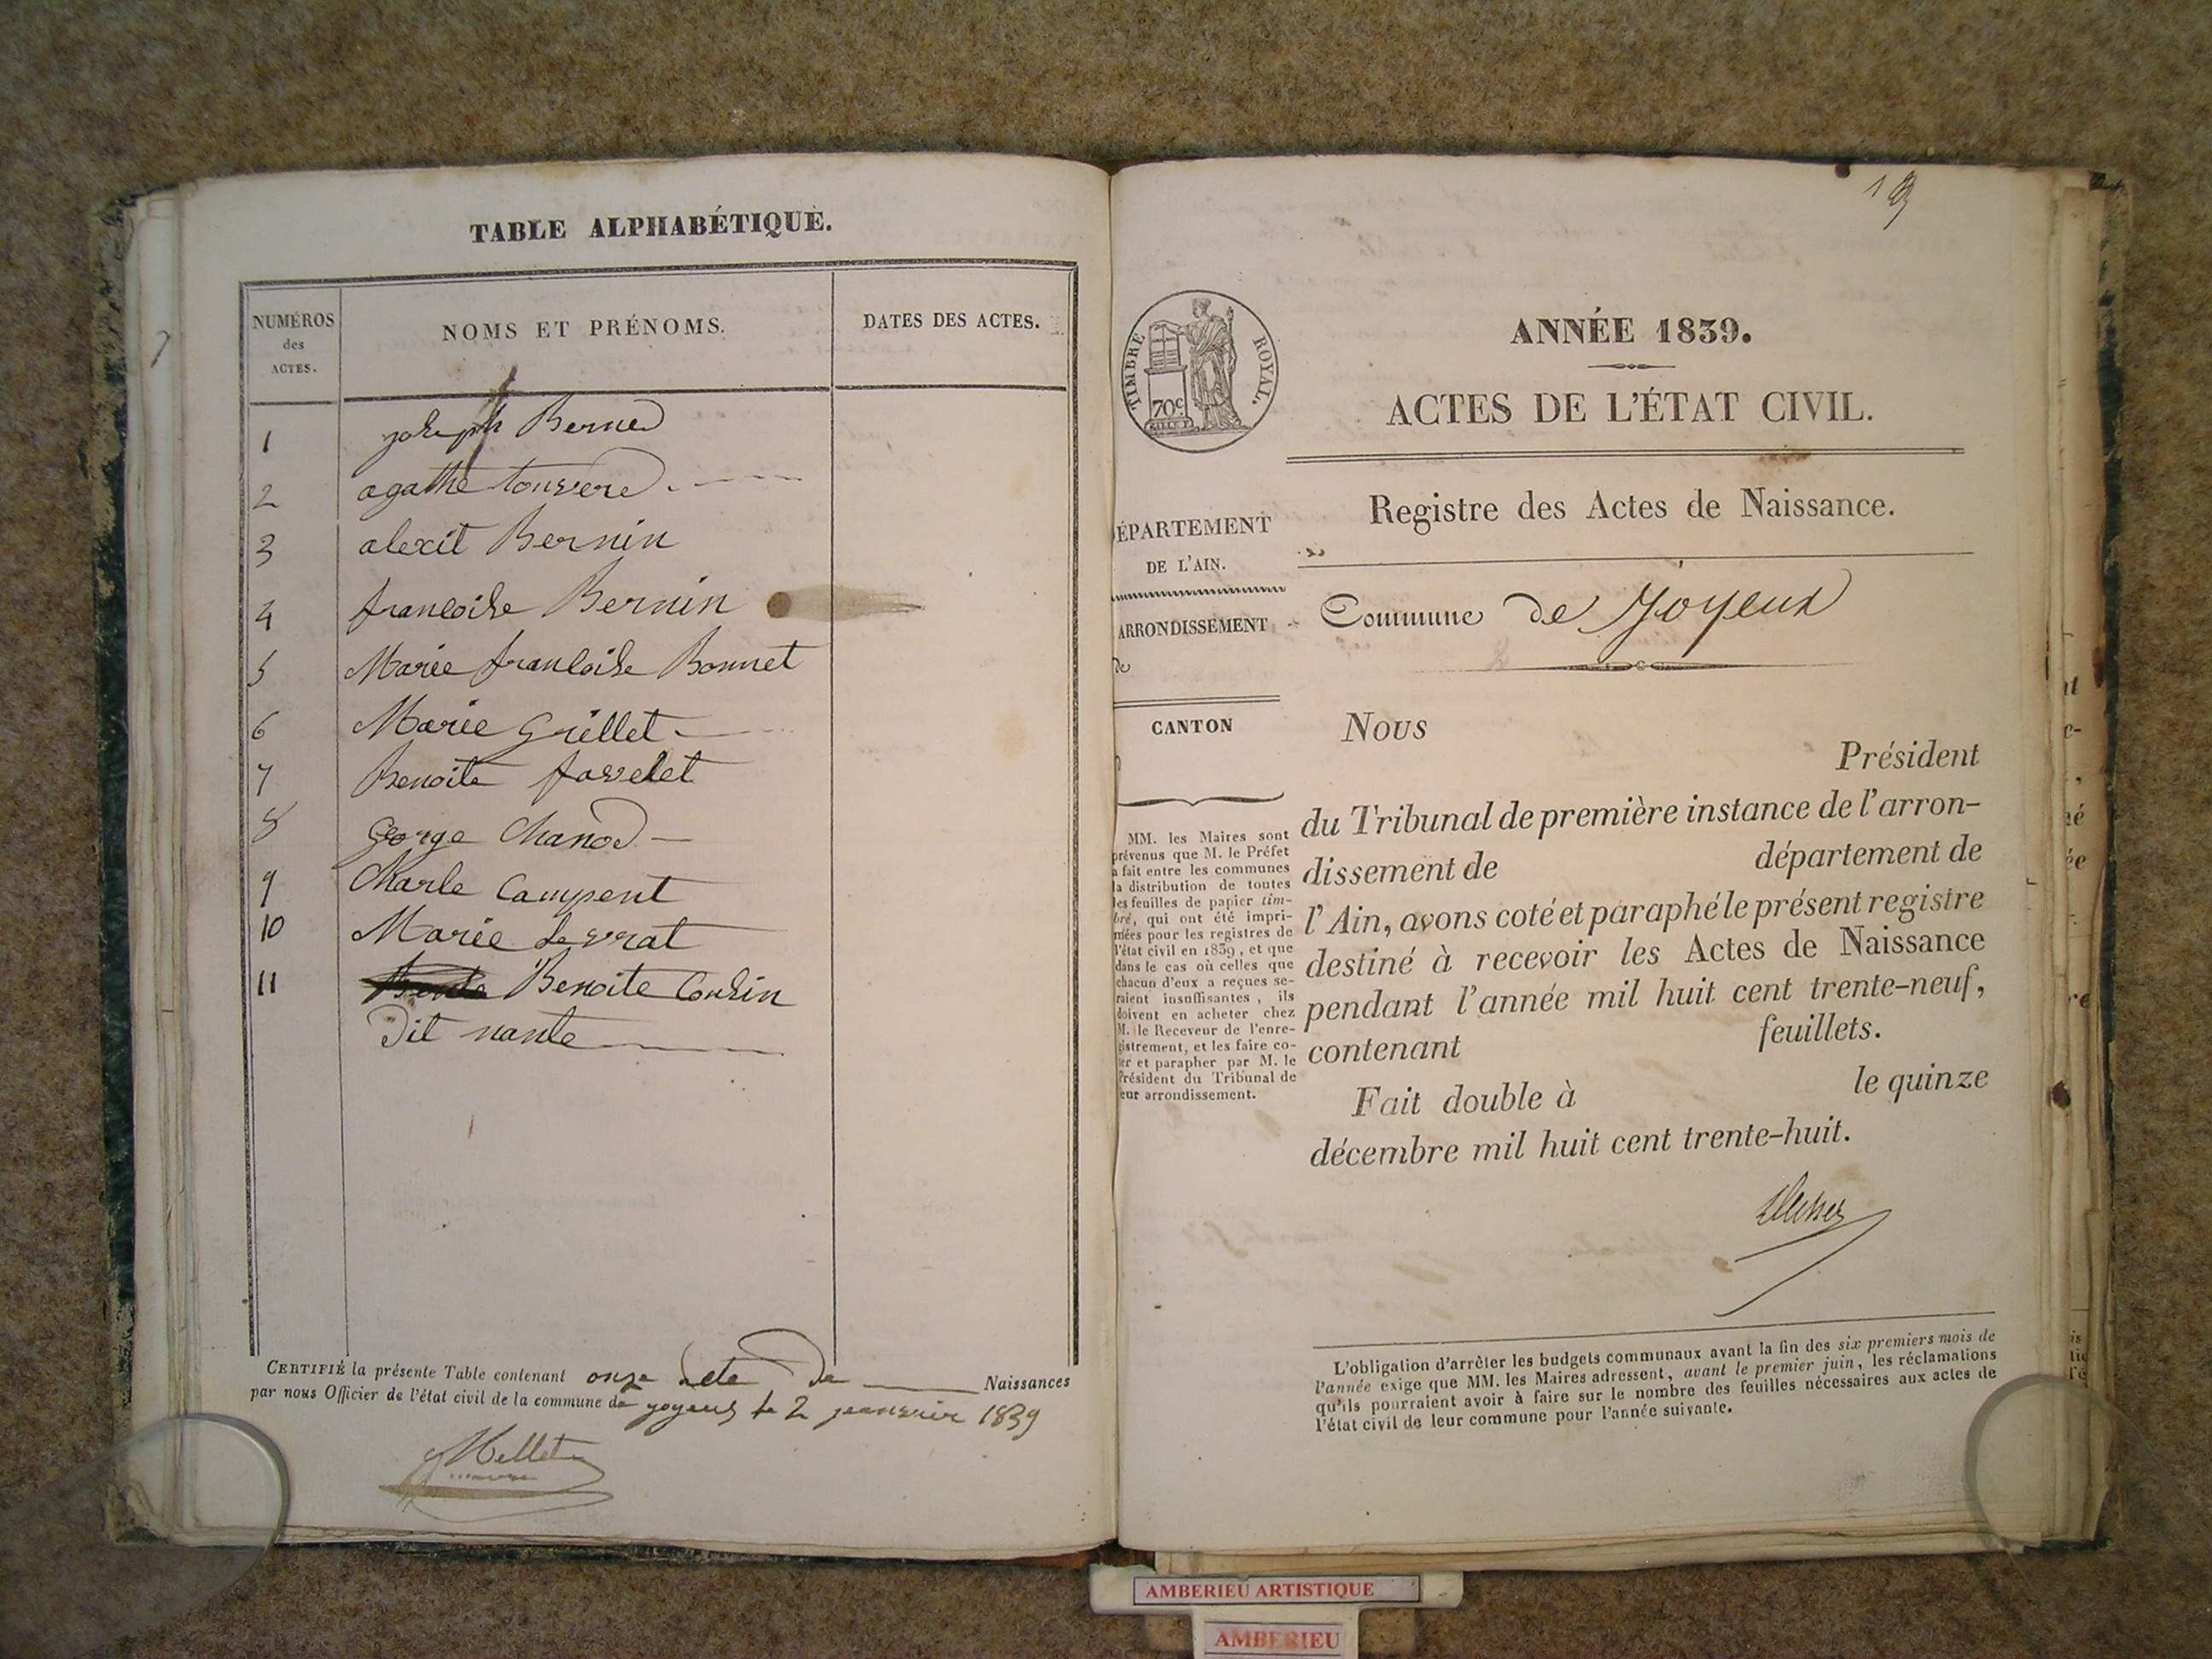 TABLE ALPHABÉTIQUE.
NUMÉROS
des
ACTES.
NOMS ET PRÉNOMS.
DATES DES ACTES.
1 joseph Berned
2 agathe touvere
3 alexit Bernin
4 francoise Bernin
5 Marie francoise Bonnet
6 Marie Grillet
7 Benoite favelet
8 George Chanod
9 Charle Campent
10 Marie Levrat
11 Benoite Cousin
Dit nante
CERTIFIÉ la présente Table contenant onze acte De Naissances
par nous Officier de l'état civil de la commune de joyeux le 2 janvier 1839
Millet
19
TIMBRE ROYAL.
70c
ANNÉE 1839.
ACTES DE L'ÉTAT CIVIL.
Registre des Actes de Naissance.
DÉPARTEMENT
DE L'AIN.
ARRONDISSEMENT
de
CANTON
Commune de Joyeux
Nous
Président
du Tribunal de première instance de l'arron-
dissement de département de
l'Ain, avons coté et paraphé le présent registre
destiné à recevoir les Actes de Naissance
pendant l'année mil huit cent trente-neuf,
contenant feuillets.
Fait double à le quinze
décembre mil huit cent trente-huit.
MM. les Maires sont
prévenus que M. le Préfet
a fait entre les communes
la distribution de toutes
les feuilles de papier tim-
bré, qui ont été impri-
mées pour les registres de
l'état civil en 1839, et que
dans le cas où celles que
chacun d'eux a reçues se-
raient insuffisantes, ils
doivent en acheter chez
M. le Receveur de l'enre-
gistrement, et les faire co-
ter et parapher par M. le
Président du Tribunal de
leur arrondissement.
L'obligation d'arrêter les budgets communaux avant la fin des six premiers mois de
l'année exige que MM. les Maires adressent, avant le premier juin, les réclamations
qu'ils pourraient avoir à faire sur le nombre des feuilles nécessaires aux actes de
l'état civil de leur commune pour l'année suivante.
AMBERIEU ARTISTIQUE
AMBERIEU